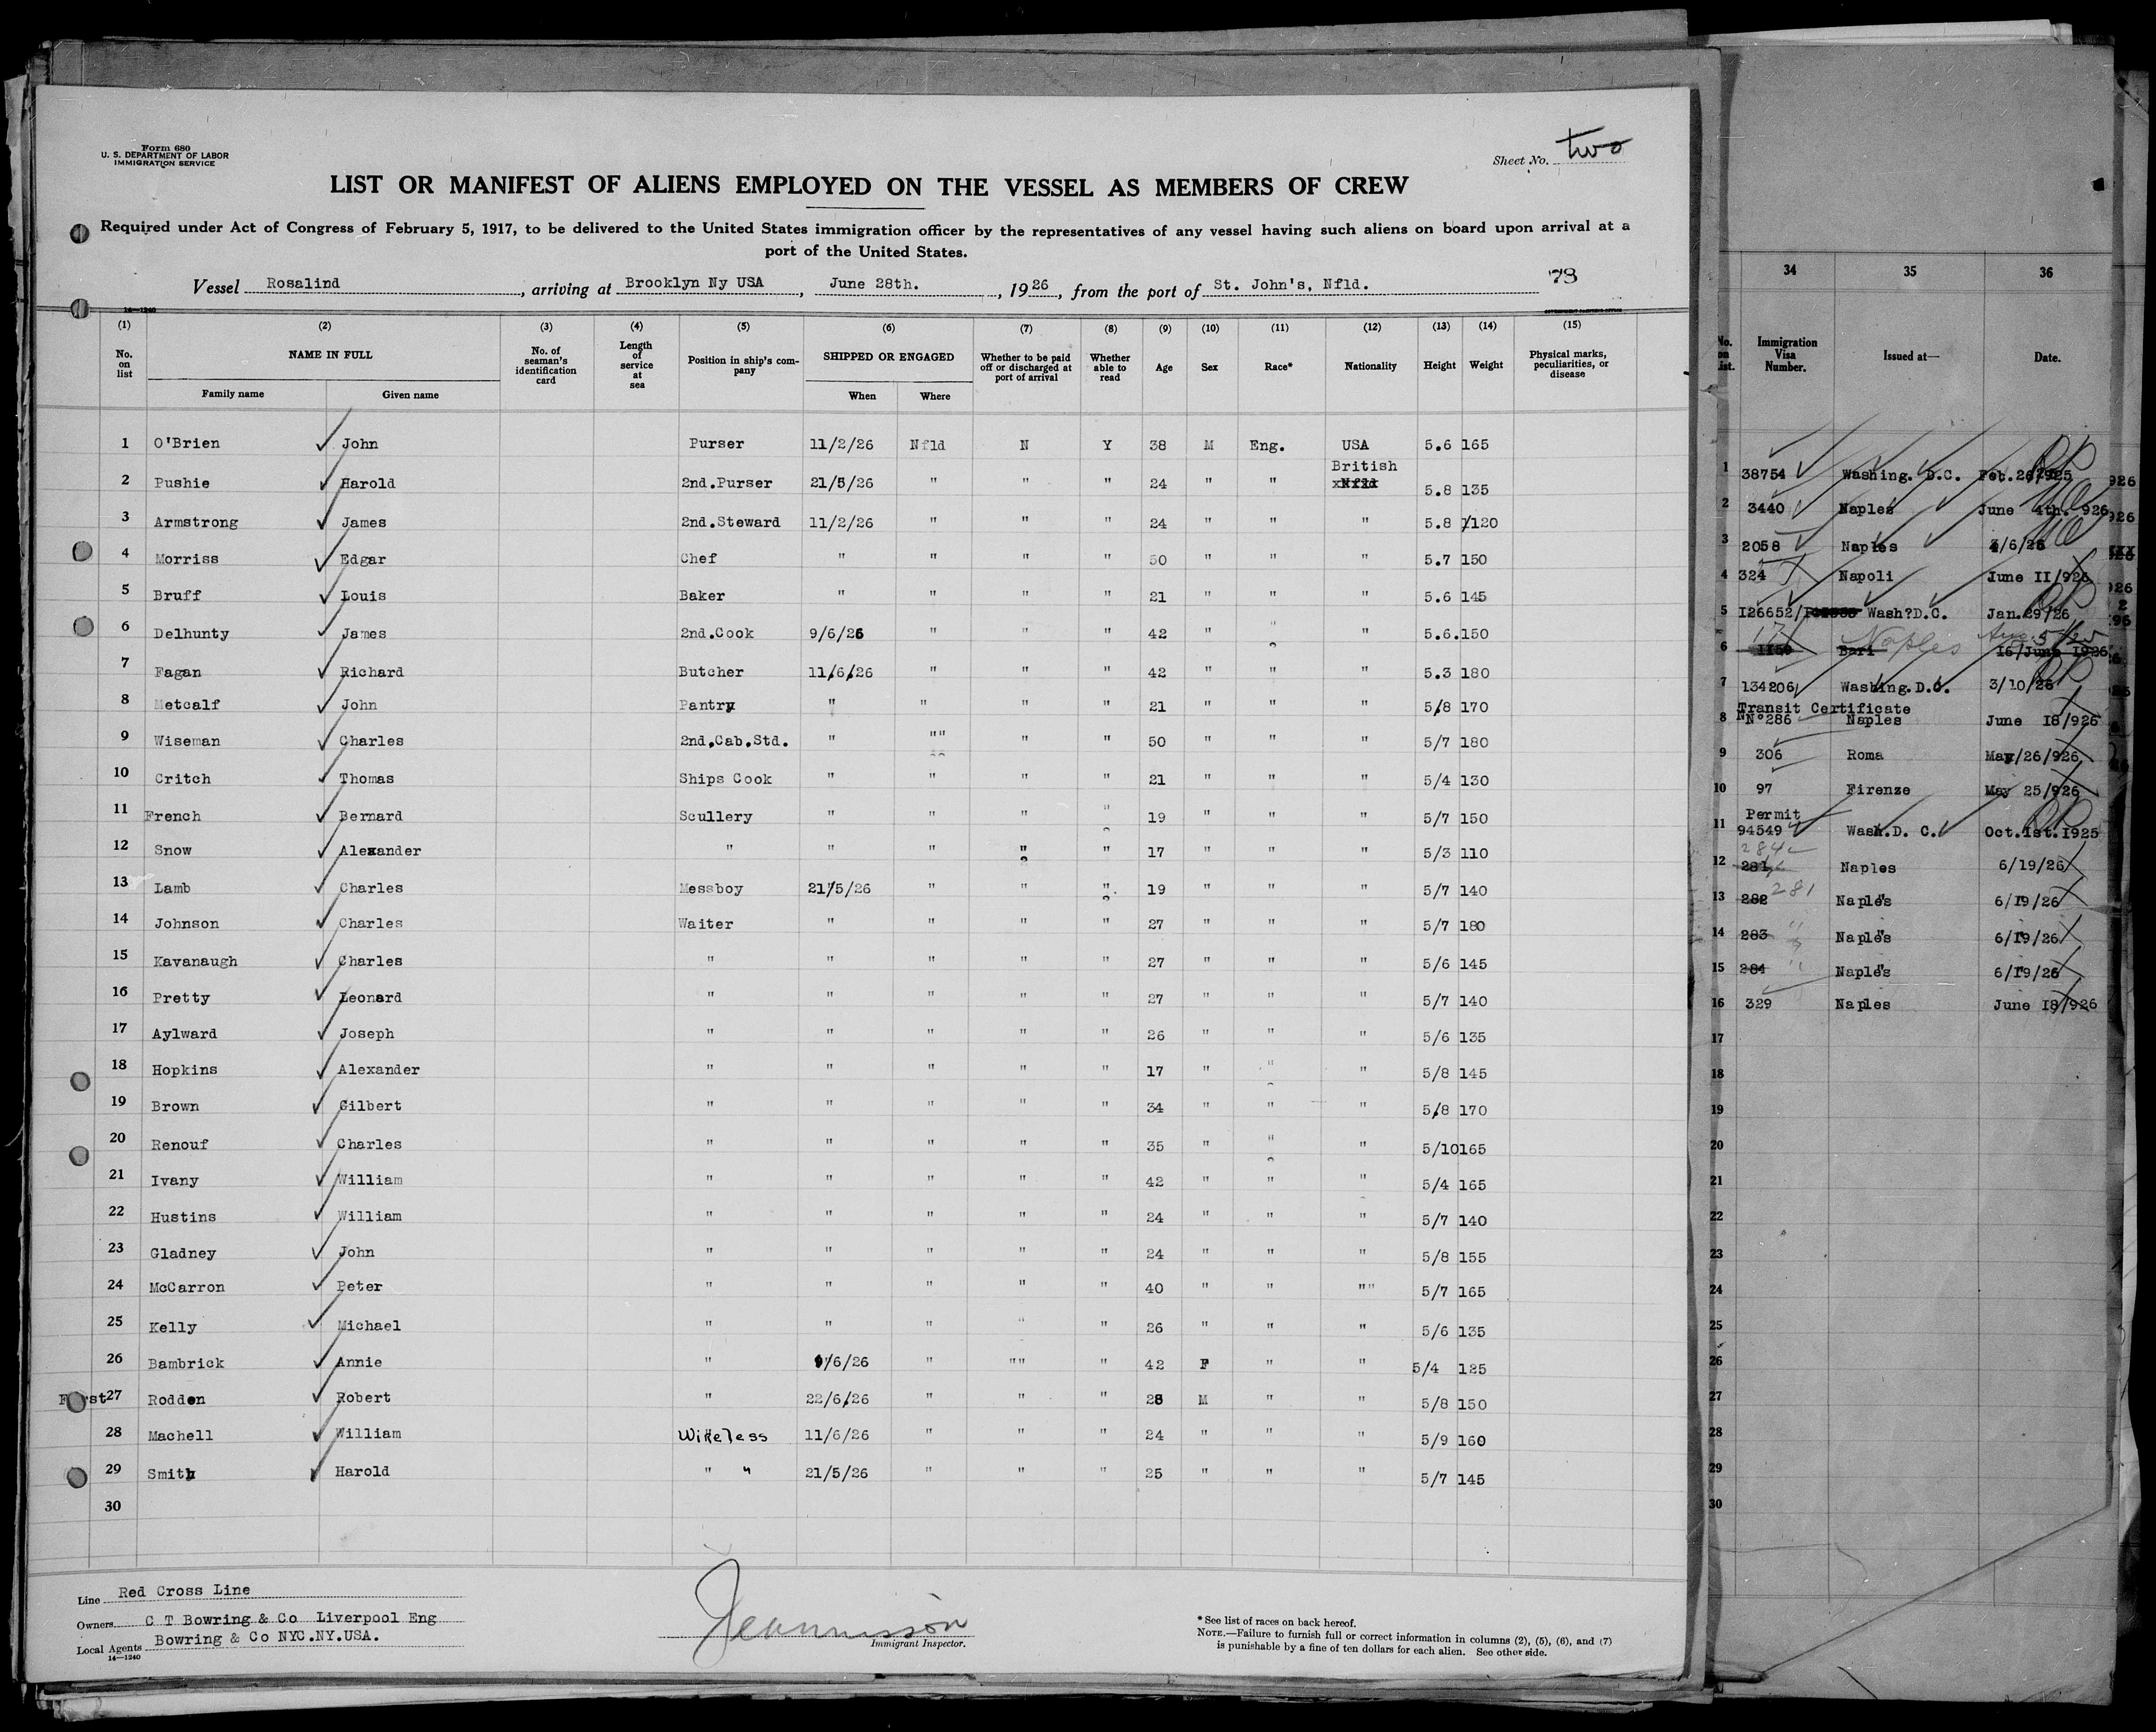 Form 680
U. S. DEPARTMENT OF LABOR
IMMIGRATION SERVICE
Sheet No. two
LIST OR MANIFEST OF ALIENS EMPLOYED ON THE VESSEL AS MEMBERS OF CREW
Required under Act of Congress of February 5, 1917, to be delivered to the United States immigration officer by the representatives of any vessel having such aliens on board upon arrival at a
port of the United States.
Vessel Rosalind, arriving at Brooklyn Ny USA, June 28th., 1926, from the port of St. John's, Nfld. 78
14—1240
(1) (2) (3) (4) (5) (6) (7) (8) (9) (10) (11) (12) (13) (14) (15)
No. on list NAME IN FULL No. of seaman's identification card Length of service at sea Position in ship's company SHIPPED OR ENGAGED Whether to be paid off or discharged at port of arrival Whether able to read Age Sex Race* Nationality Height Weight Physical marks, peculiarities, or disease
Family name Given name When Where
1 O'Brien John Purser 11/2/26 Nfld N Y 38 M Eng. USA 5.6 165
British
2 Pushie Harold 2nd.Purser 21/5/26 " " " 24 " " xNfld 5.8 135
3 Armstrong James 2nd.Steward 11/2/26 " " " 24 " " " 5.8 /120
4 Morriss Edgar Chef " " " " 50 " " " 5.7 150
5 Bruff Louis Baker " " " " 21 " " " 5.6 145
6 Delhunty James 2nd.Cook 9/6/26 " " " 42 " " " 5.6.150
7 Fagan Richard Butcher 11/6/26 " " " 42 " " " 5.3 180
8 Metcalf John Pantry " " " " 21 " " " 5/8 170
9 Wiseman Charles 2nd.Cab.Std. " "" " " 50 " " " 5/7 180
10 Critch Thomas Ships Cook " " " " 21 " " " 5/4 130
11 French Bernard Scullery " " " " 19 " " " 5/7 150
12 Snow Alexander " " " " " 17 " " " 5/3 110
13 Lamb Charles Messboy 21/5/26 " " " 19 " " " 5/7 140
14 Johnson Charles Waiter " " " " 27 " " " 5/7 180
15 Kavanaugh Charles " " " " " 27 " " " 5/6 145
16 Pretty Leonard " " " " " 27 " " " 5/7 140
17 Aylward Joseph " " " " " 26 " " " 5/6 135
18 Hopkins Alexander " " " " " 17 " " " 5/8 145
19 Brown Gilbert " " " " " 34 " " " 5/8 170
20 Renouf Charles " " " " " 35 " " " 5/10165
21 Ivany William " " " " " 42 " " " 5/4 165
22 Hustins William " " " " " 24 " " " 5/7 140
23 Gladney John " " " " " 24 " " " 5/8 155
24 McCarron Peter " " " " " 40 " " "" 5/7 165
25 Kelly Michael " " " " " 26 " " " 5/6 135
26 Bambrick Annie " 9/6/26 " "" " 42 F " " 5/4 125
27 Rodden Robert " 22/6/26 " " " 28 M " " 5/8 150
28 Machell William Wireless 11/6/26 " " " 24 " " " 5/9 160
29 Smith Harold " " 21/5/26 " " " 25 " " " 5/7 145
30
Line Red Cross Line
Owners C T Bowring & Co Liverpool Eng
Local Agents Bowring & Co NYC.NY.USA.
14—1240
Immigrant Inspector.
* See list of races on back hereof.
NOTE.—Failure to furnish full or correct information in columns (2), (5), (6), and (7)
is punishable by a fine of ten dollars for each alien. See other side.
34 35 36
No. on List. Immigration Visa Number. Issued at— Date.
1 38754 Washing. D.C. Feb.26/1925
2 3440 Naples June 4th. 926
3 2058 Naples 4/6/26
4 324 Napoli June II/926
5 I26652 Wash?D.C. Jan.29/26
6 1150 Bari Naples 16/June 1926
7 134206 Washing.D.C. 3/10/26
Transit Certificate
8 N°286 Naples June I8/926
9 306 Roma May/26/926
10 97 Firenze May 25/926
Permit
11 94549 Wash.D. C. Oct.1st.I925
284
12 281 Naples 6/19/26
13 282 281 Naples 6/19/26
14 283 " Naples 6/19/26
15 284 " Naples 6/19/26
16 329 Naples June I8/926
17
18
19
20
21
22
23
24
25
26
27
28
29
30